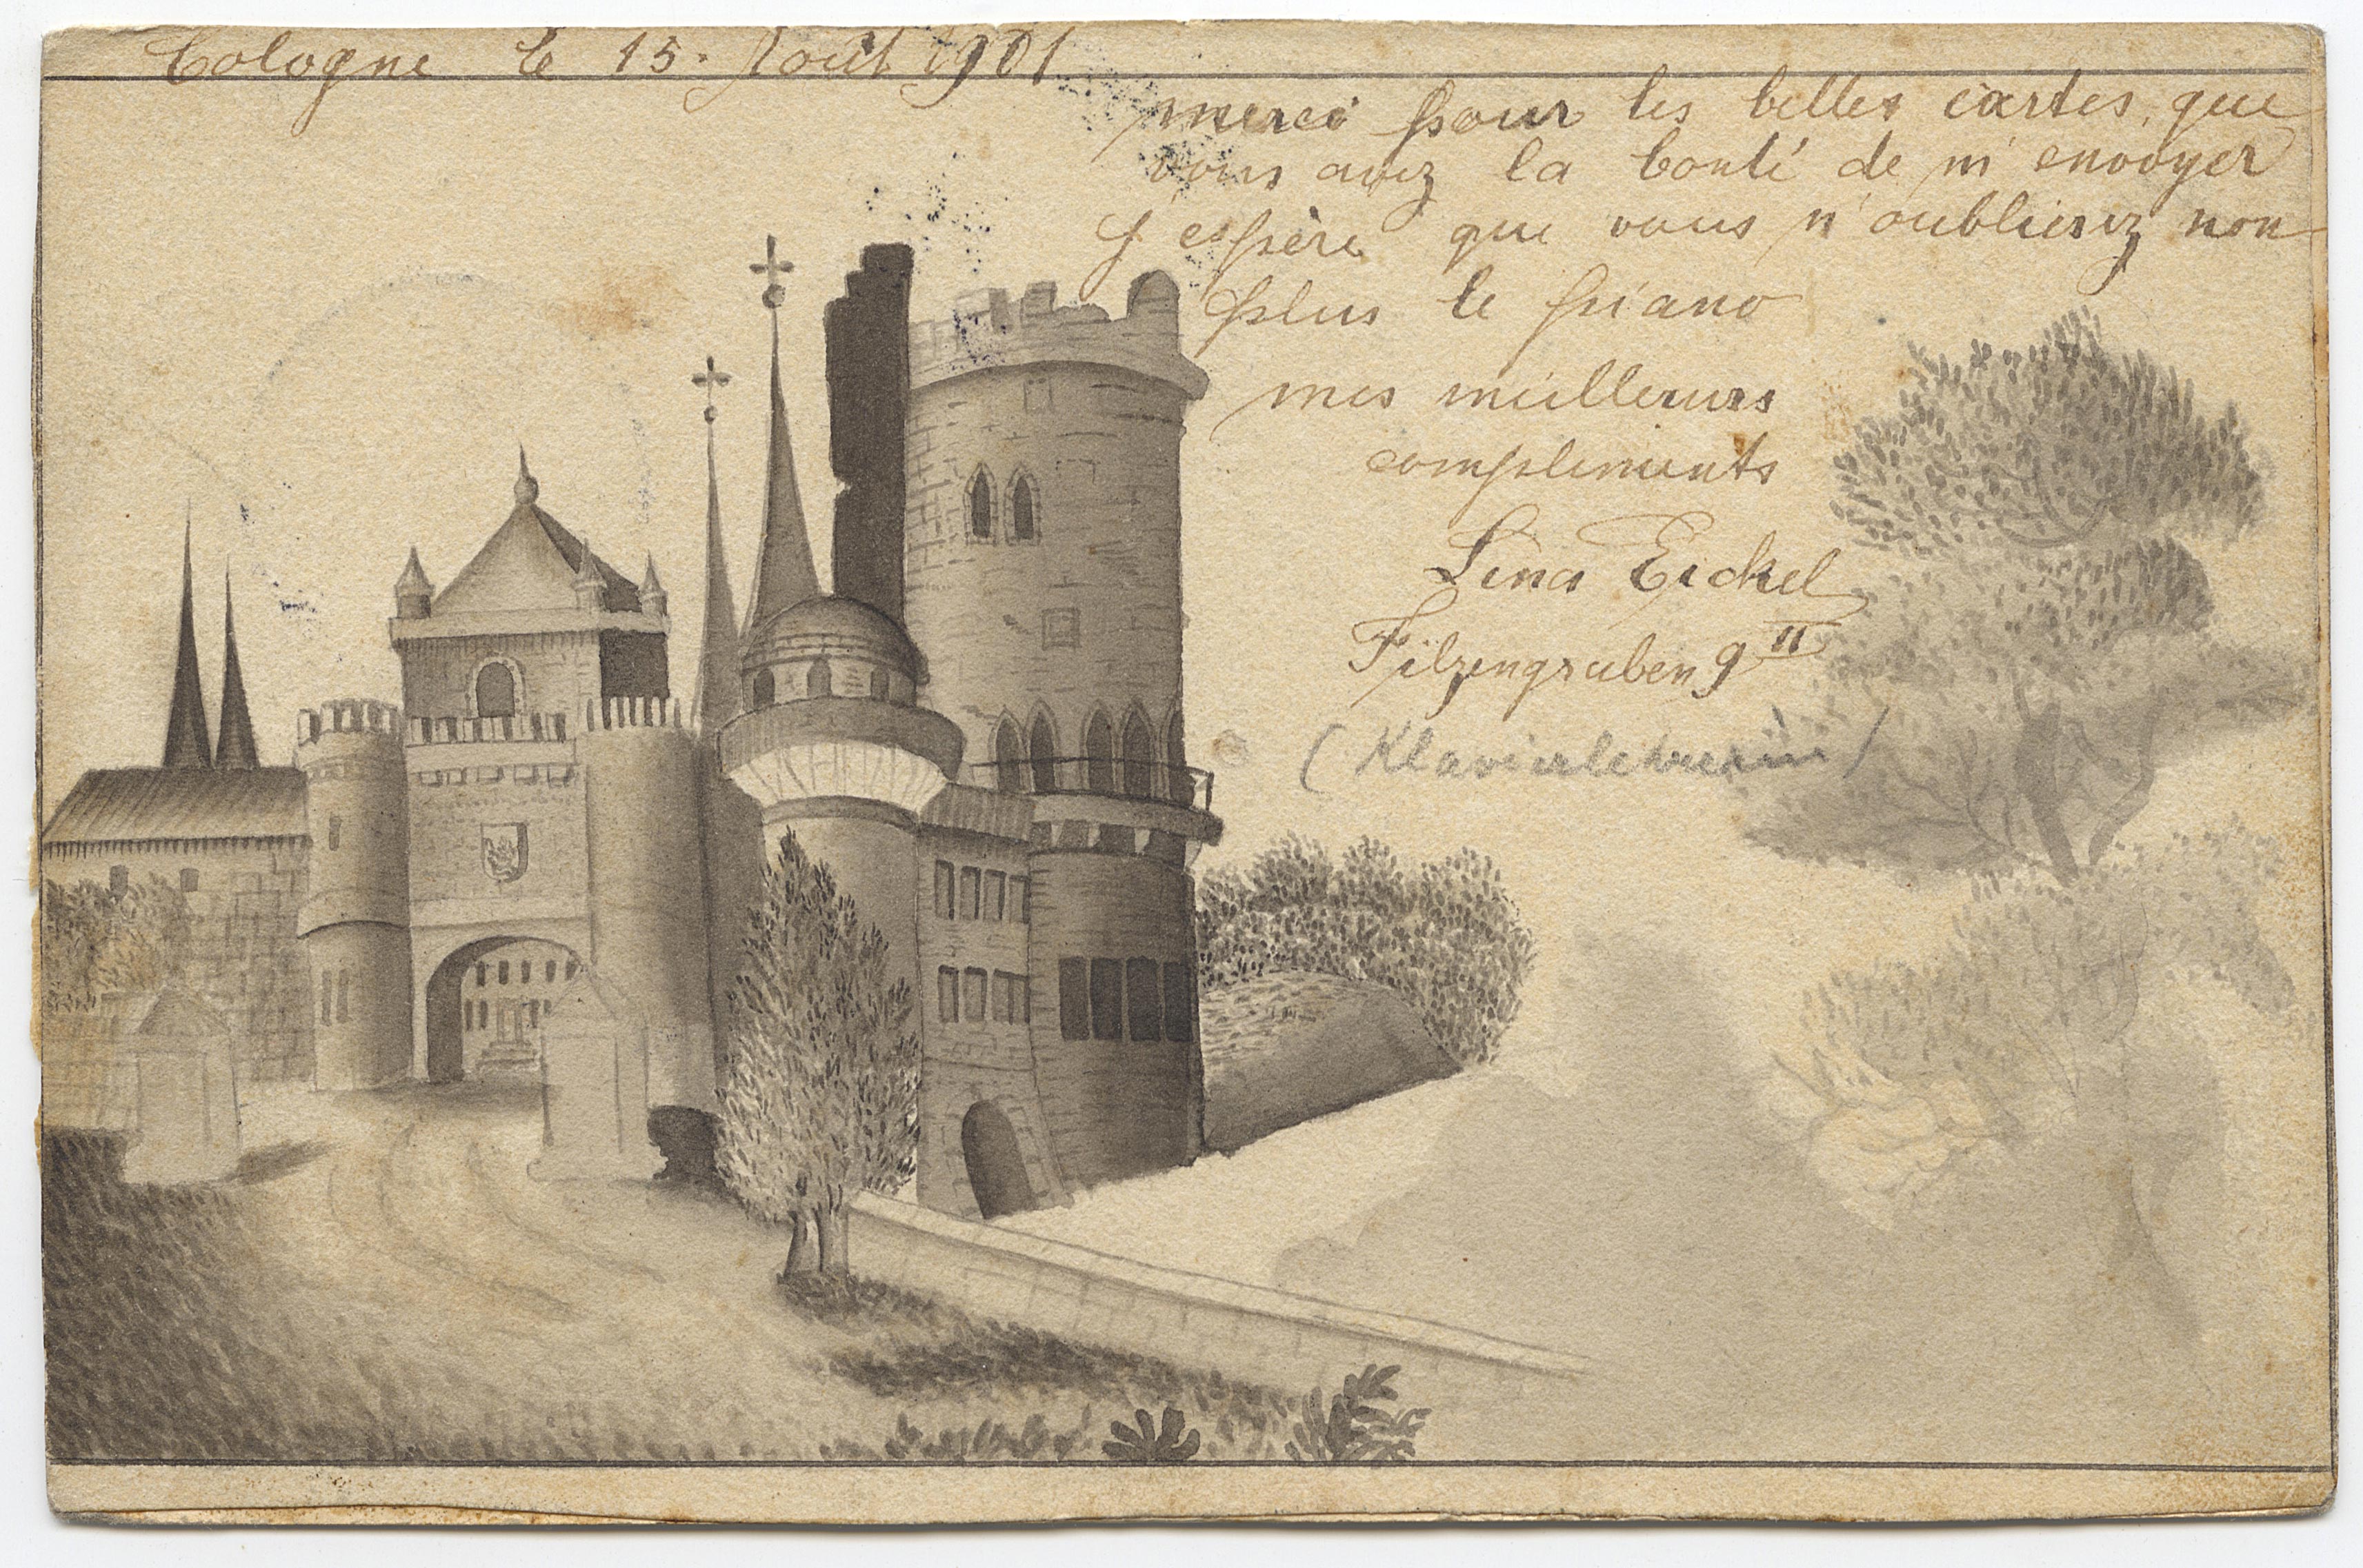 Cologne le 15. Août 1901
merci pour les belles cartes, que
vous avez la bonté de m'envoyer
j'espère que vous n'oublierez non
plus le piano
mes meilleurs
compliments
Lina Eickel
Filzengraben 9 II
(Klavierlehrerin)